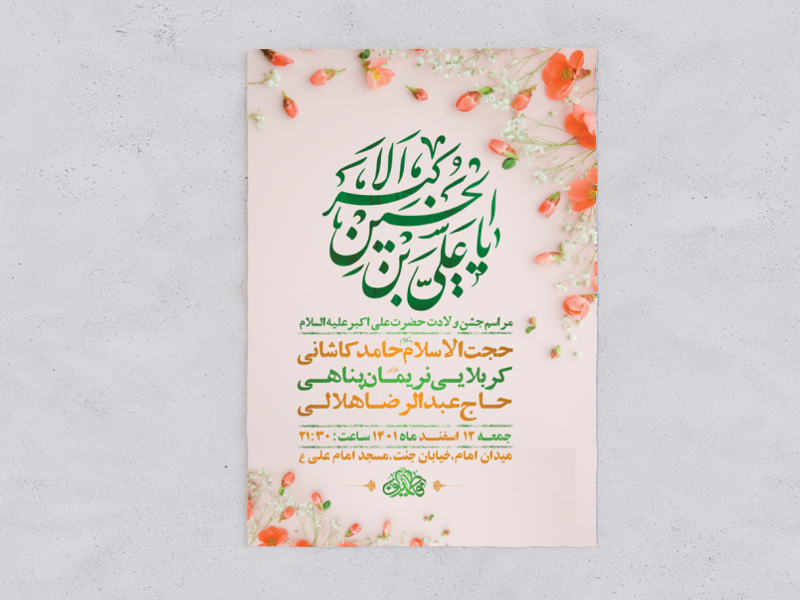 یا علی بن الحسین الاکبر
مراسم جشن ولادت حضرت علی اکبر علیه السلام
حجت الاسلام حامد کاشانی
کربلایی نریمان پناهی
حاج عبدالرضا هلالی
جمعه ۱۲ اسفند ماه ۱۴۰۱ ساعت: ۲۱:۳۰
میدان امام، خیابان جنت، مسجد امام علی ع